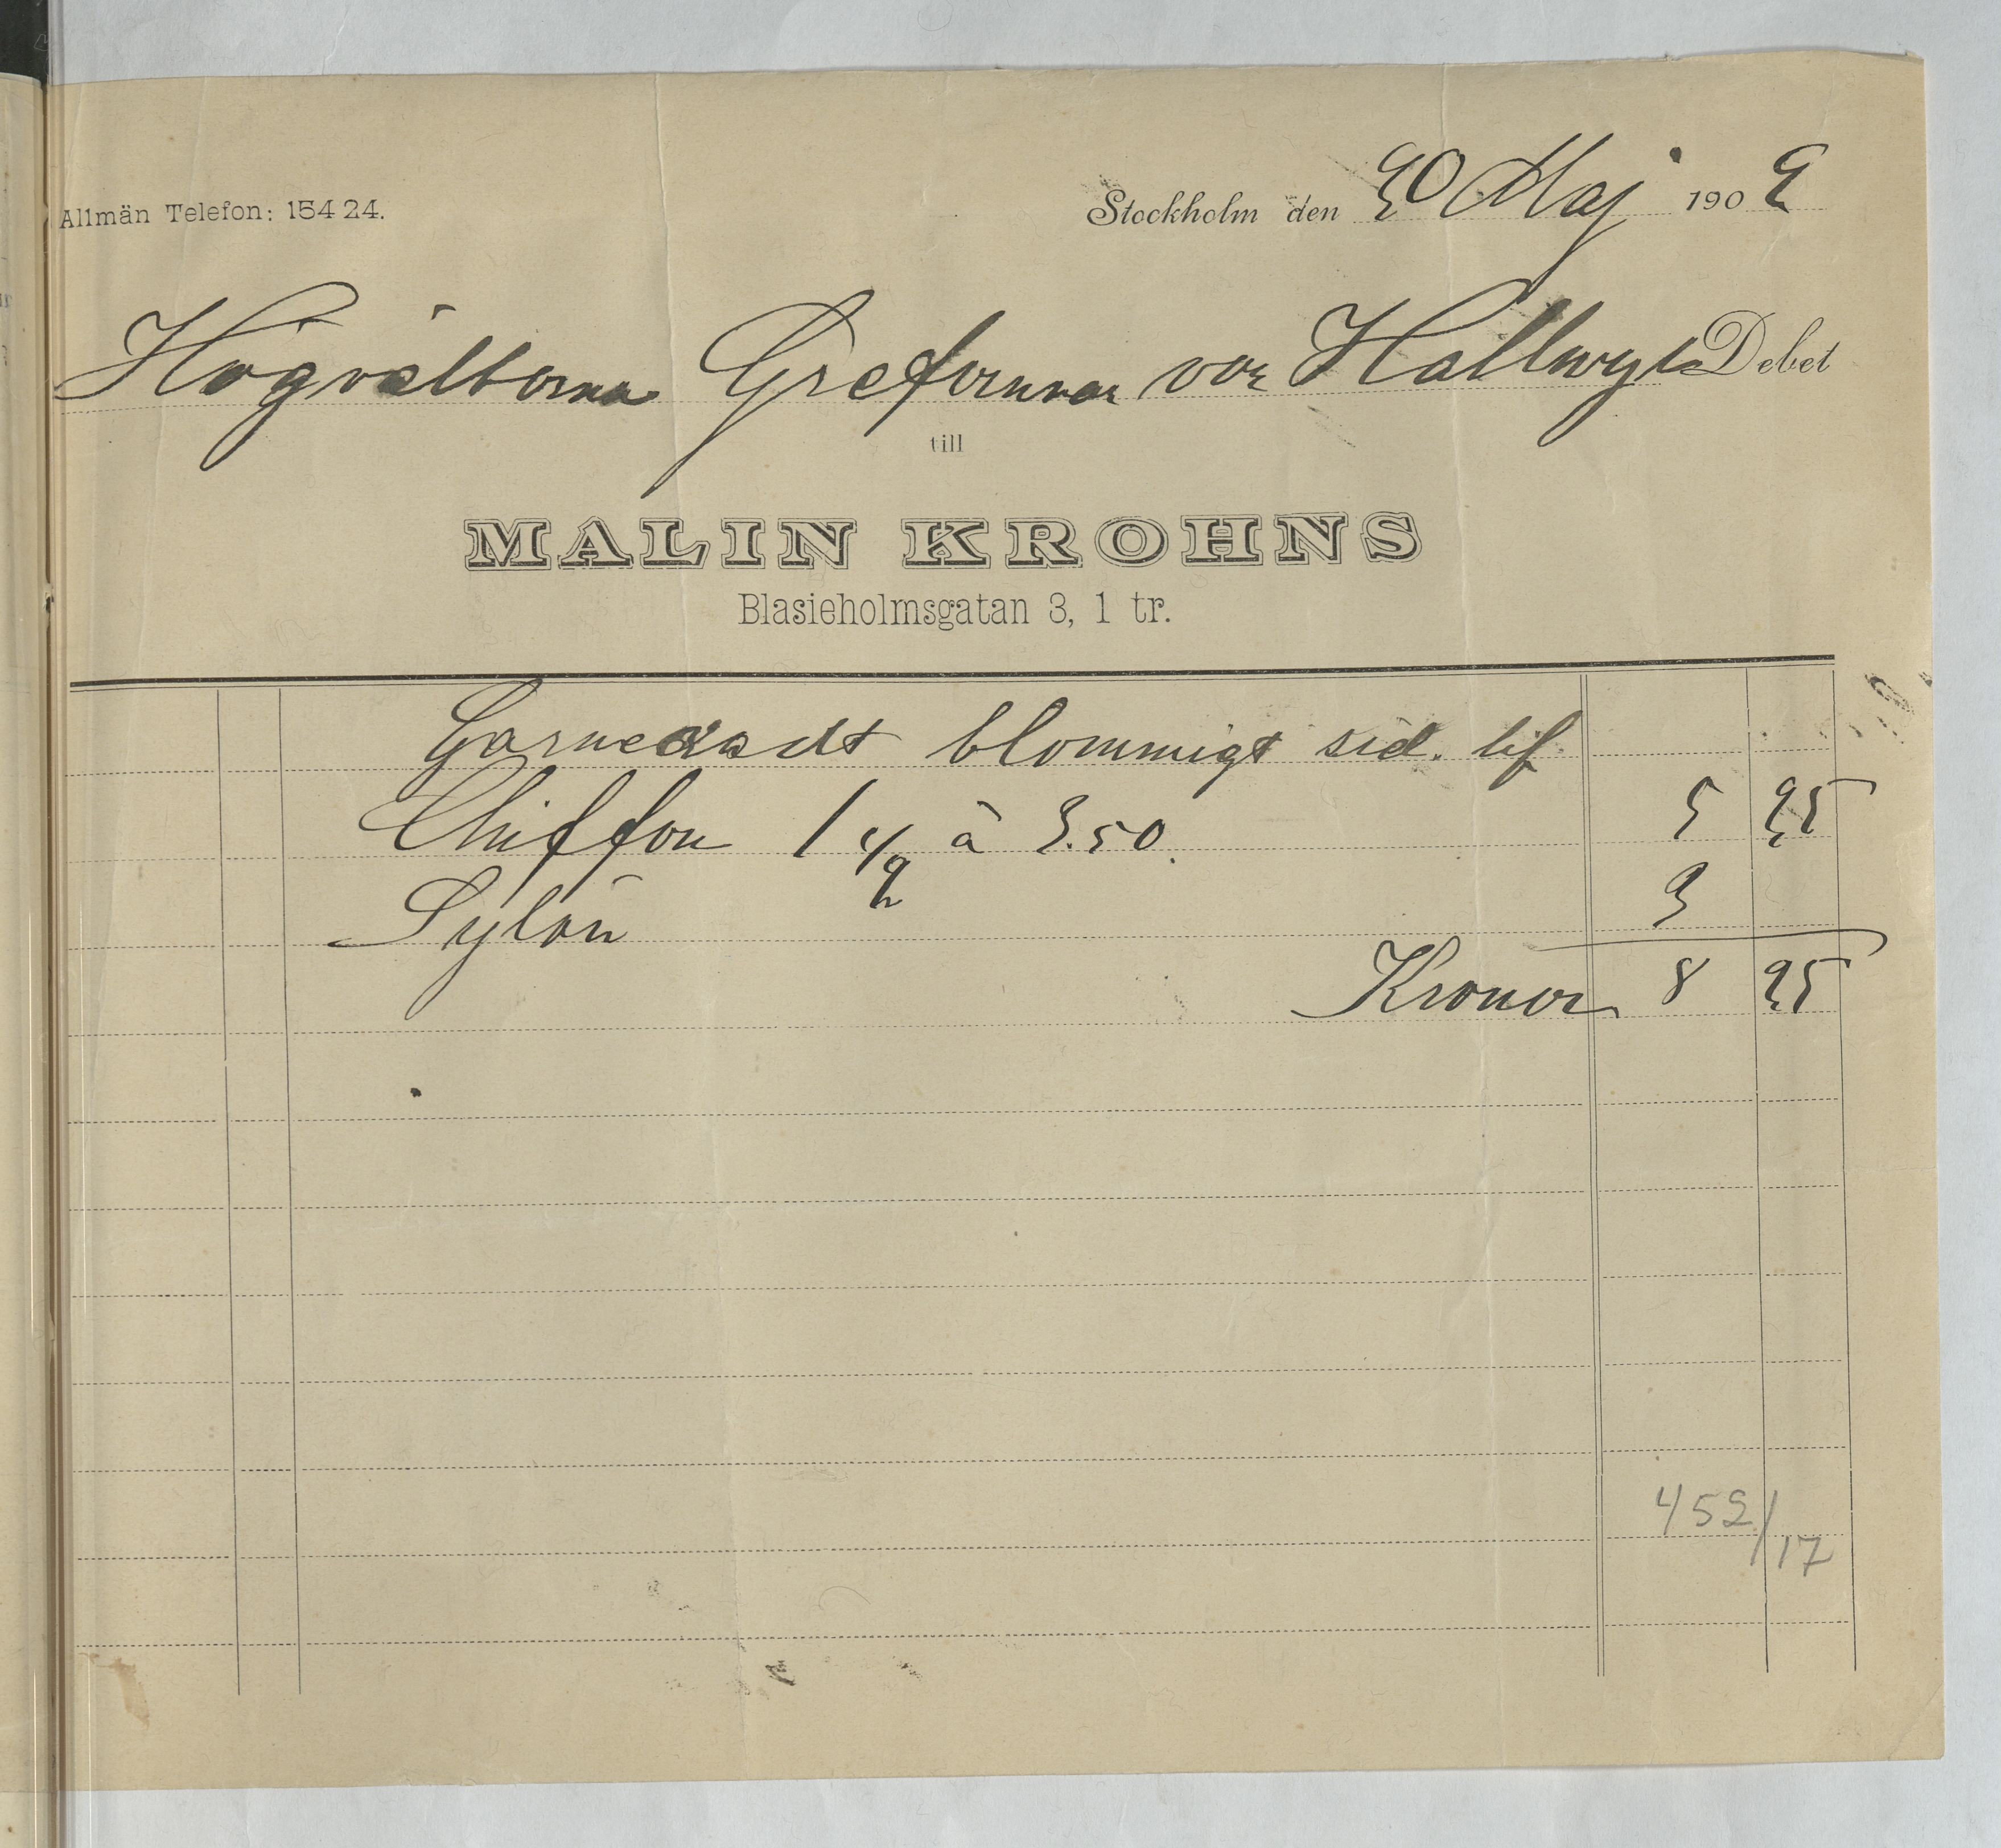 Allmän Telefon: 154 24.
Stockholm den 20 Maj 1902
Högvälborna Grefvinnan von Hallwyl Debet
till
MALIN KROHNS
Blasieholmsgatan 3, 1 tr.
blommigt sid. lif
Chiffon 1 1/2 à 3.50. 5 25
Sylön 3
Kronor 8 25
452/17